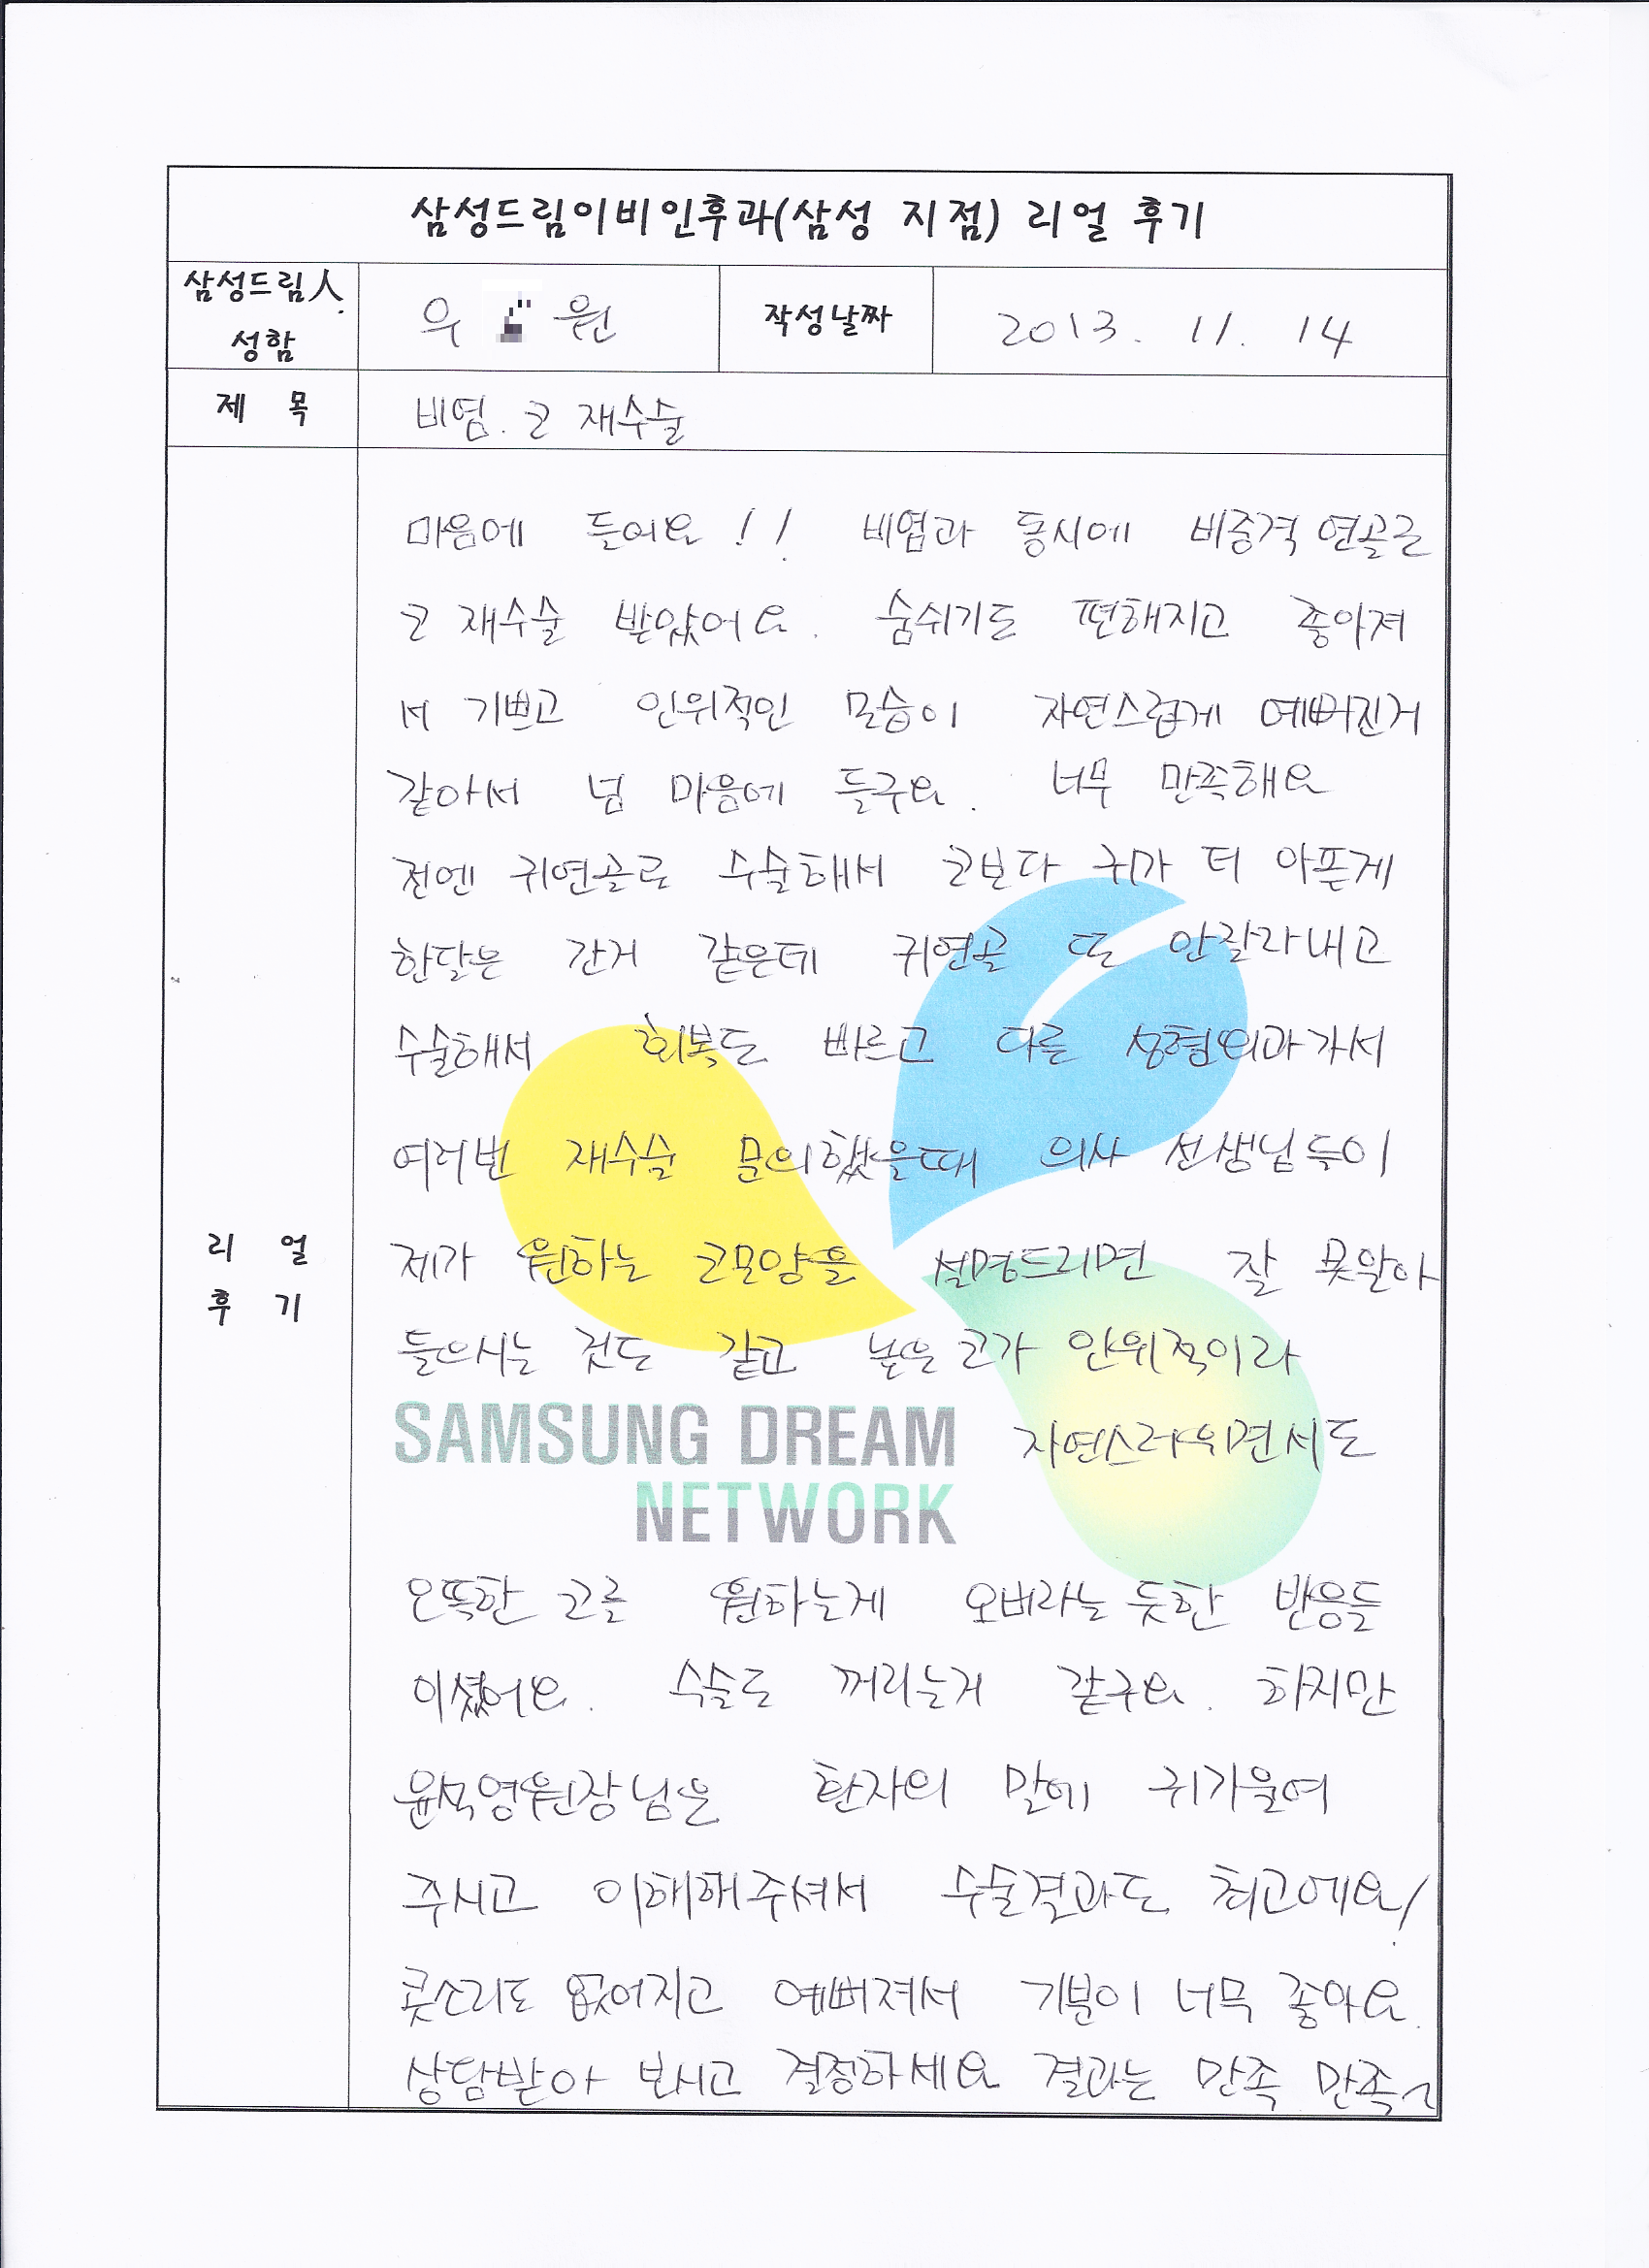 삼성드림이비인후과(삼성 지점) 리얼 후기
삼성드림人
성함
우 원
작성날짜
2013. 11. 14
제 목
비염. 코 재수술
리 얼
후 기
마음에 들어요!! 비염과 동시에 비중격 연골로
코 재수술 받았어요. 숨쉬기도 편해지고 좋아져
서 기쁘고 인위적인 모습이 자연스럽게 예뻐진거
같아서 넘 마음에 들구요. 너무 만족해요
전엔 귀연골로 수술해서 코보다 귀가 더 아픈게
한달은 간거 같은데 귀연골 또 안잘라내고
수술해서 회복도 빠르고 다른 성형외과가서
여러번 재수술 문의했을때 의사 선생님들이
제가 원하는 코모양을 설명드리면 잘 못알아
들으시는 것도 같고 높은 코가 인위적이라
자연스러우면서도
SAMSUNG DREAM
NETWORK
오똑한 코를 원하는게 오버라는 듯한 반응들
이셨어요. 수술도 꺼리는거 같구요. 하지만
원장님은 환자의 말에 귀기울여
주시고 이해해주셔서 수술결과도 최고에요!
콧소리도 없어지고 예뻐져서 기분이 너무 좋아요.
상담받아 보시고 결정하세요 결과는 만족 만족~